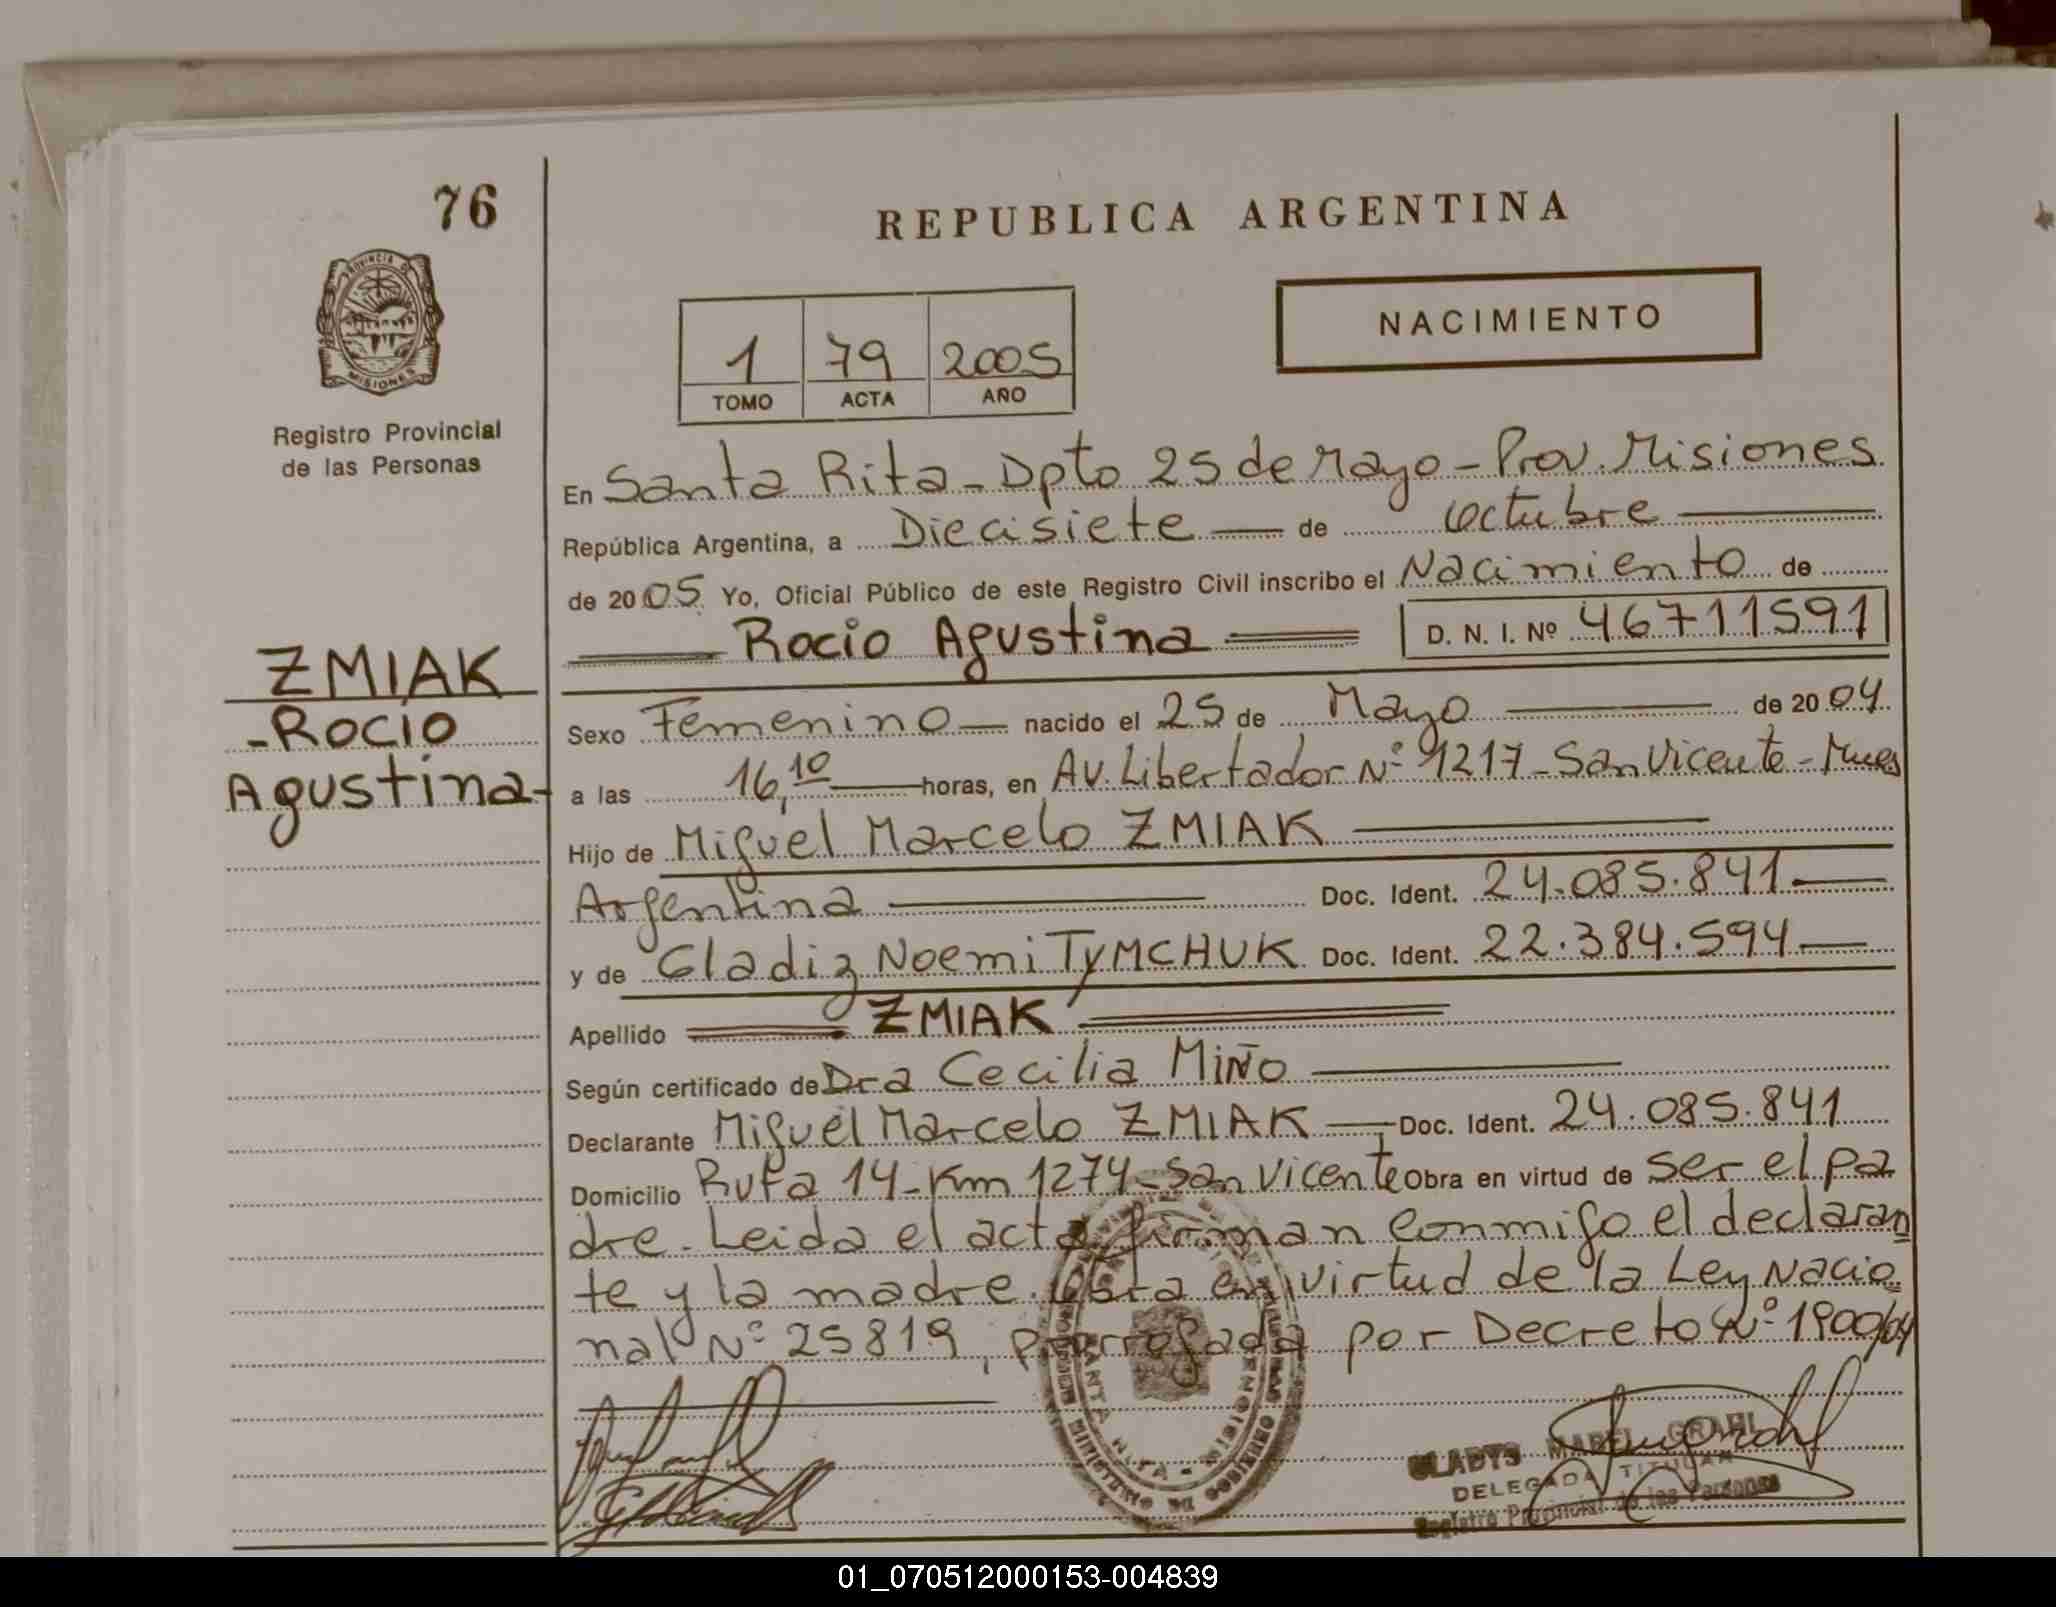 76
REPUBLICA ARGENTINA
PROVINCIA DE
MISIONES
NACIMIENTO
1 79 2005
TOMO ACTA AÑO
Registro Provincial
de las Personas
En Santa Rita - Dpto 25 de Mayo - Prov. Misiones
República Argentina, a Diecisiete — de octubre —
de 2005 Yo, Oficial Público de este Registro Civil inscribo el Nacimiento de
Rocio Agustina D. N. I. Nº 46711591
ZMIAK
- ROCIO
Agustina -
Sexo Femenino — nacido el 25 de Mayo — de 2004
a las 16,10 — horas, en Av. Libertador Nº 1217 - San Vicente - Mnes
Hijo de Miguel Marcelo ZMIAK —
Argentina — Doc. Ident. 24.085.841 —
y de Gladiz Noemi TyMCHUK Doc. Ident. 22.384.594 —
Apellido ZMIAK
Según certificado de Dra Cecilia Miño —
Declarante Miguel Marcelo ZMIAK — Doc. Ident. 24.085.841
Domicilio Ruta 14 - Km 1274 - San Vicente Obra en virtud de ser el pa
dre. Leida el acta firman conmigo el declaran
te y la madre. obra en virtud de la Ley Nacio
nal Nº 25819, prorrogada por Decreto Nº 1900/04
SANTA RITA - MISIONES
GLADYS MABEL GRAHL
DELEGADA TITULAR
Registro Provincial de las Personas
01_070512000153-004839